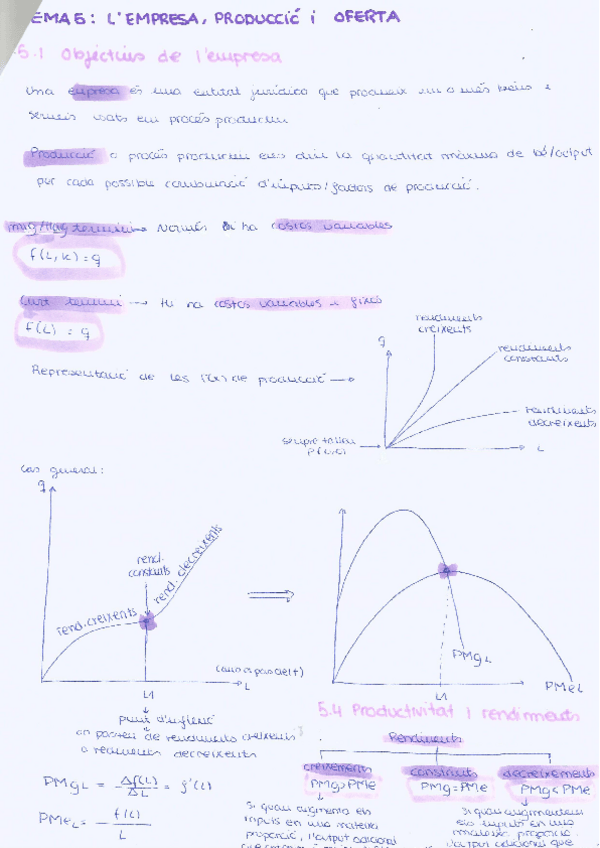 EMA 5: L'EMPRESA, PRODUCCIÓ i OFERTA
5.1 Objectius de l'empresa
Una empresa és una entitat jurídica que produeix un o més béns i
serveis usats em procés productiu.
Producció o procés productiu ens diu la quantitat màxima de bé/output
per cada possible combinació d'inputs/factors de producció.
mig/llarg termini → Només hi ha costos variables
f(L,K) = q
Curt termini → hi ha costos variables i fixos
f(L) = q
rendiments
creixents
q
rendiments
constants
Representació de les f(x) de producció →
rendiments
decreixents
sempre
L
Cas general:
q
rend.
constants
rend. decreixents
rend. creixents
L
L1
PMgL
L1
PMeL
punt d'inflexió
on passem de rendiments creixents
a rendiments decreixents
5.4 Productivitat i rendiments
Rendiments
creixements
constants
decreixements
PMg>PMe
PMg=PMe
PMg<PMe
PMgL = Δf(L)/ΔL = f'(L)
PMeL = f(L)/L
Si quan augmento els
inputs en una mateixa
proporció, l'output adicional
Si quan augmentem
els inputs en una
mateixa proporció
l'output adicional que